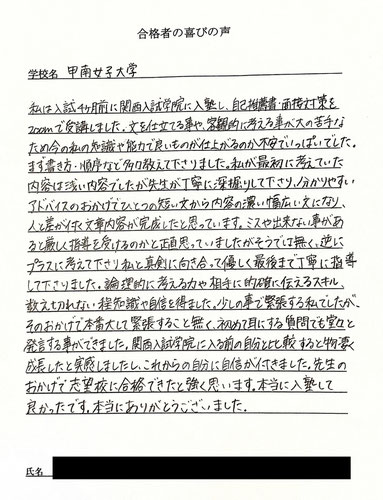 合格者の喜びの声
学校名 甲南女子大学
私は入試4ヶ月前に関西入試学院に入塾し、自己推薦書・面接対策を
zoomで受講しました。文を仕立てる事や、客観的に考える事が大の苦手な
ため今の私の知識や能力で良いものが仕上がるのか不安でいっぱいでした。
まず書き方・順序など多々教えて下さりました。私が最初に考えていた
内容は浅い内容でしたが先生が丁寧に深掘りして下さり、分かりやすい
アドバイスのおかげでひとつの短い文から内容の濃い幅広い文になり、
人と差が付く文章内容が完成したと思っています。ミスや出来ない事があ
ると厳しく指導を受けるのかと正直思っていましたがそうでは無く、逆に
プラスに考えて下さり私と真剣に向き合って優しく最後まで丁寧に指導
して下さりました。論理的に考える力や相手に的確に伝えるスキル、
数えきれない程知識や自信を得ました。少しの事で緊張する私でしたが、
そのおかげで本番大して緊張すること無く、初めて耳にする質問でも堂々と
発言する事ができました。関西入試学院に入る前の自分と比較すると物凄く
成長したと実感しましたし、これからの自分に自信が付きました。先生の
おかげで志望校に合格できたと強く思います。本当に入塾して
良かったです。本当にありがとうございました。
氏名